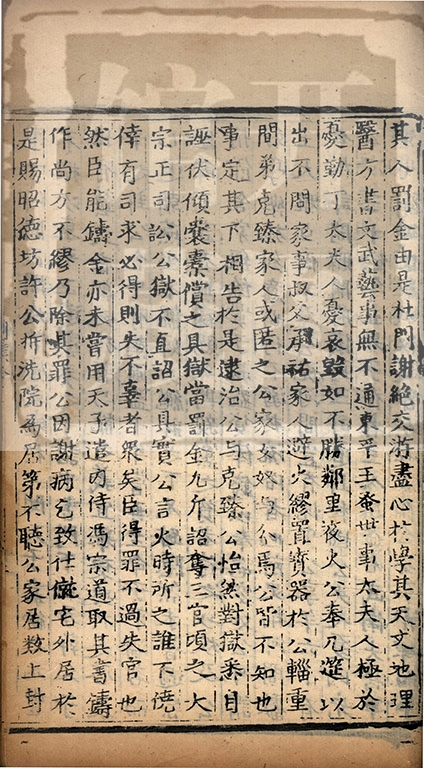 其人罰金由是杜門謝絶交游盡心於學其天文地理
醫方書文武藝事無不通東平王蚤世事太夫人極於
憂勤丁太夫人憂哀毀如不勝鄰里夜火公奉几筵以
出不問家事叔父承祐家人避火繆置寳器於公輜重
間弟克臻家人或匿之公家女奴与分焉公皆不知也
事定其下相告於是逮治公与克臻公怡然對獄悉自
誣伏傾囊橐償之具獄當罰金九斤詔奪三官頃之大
宗正司訟公獄不直詔公具實公言火時所之誰下僥
倖有司求必得則失不辜者衆矣臣得罪不過失官也
然臣能鑄金亦未嘗用天子遣内侍馮宗道取其書鑄
作尚方不繆乃除其罪公因謝病乞致仕僦宅外居於
是賜昭德坊許公拆洗院為居第不聽公家居数上封